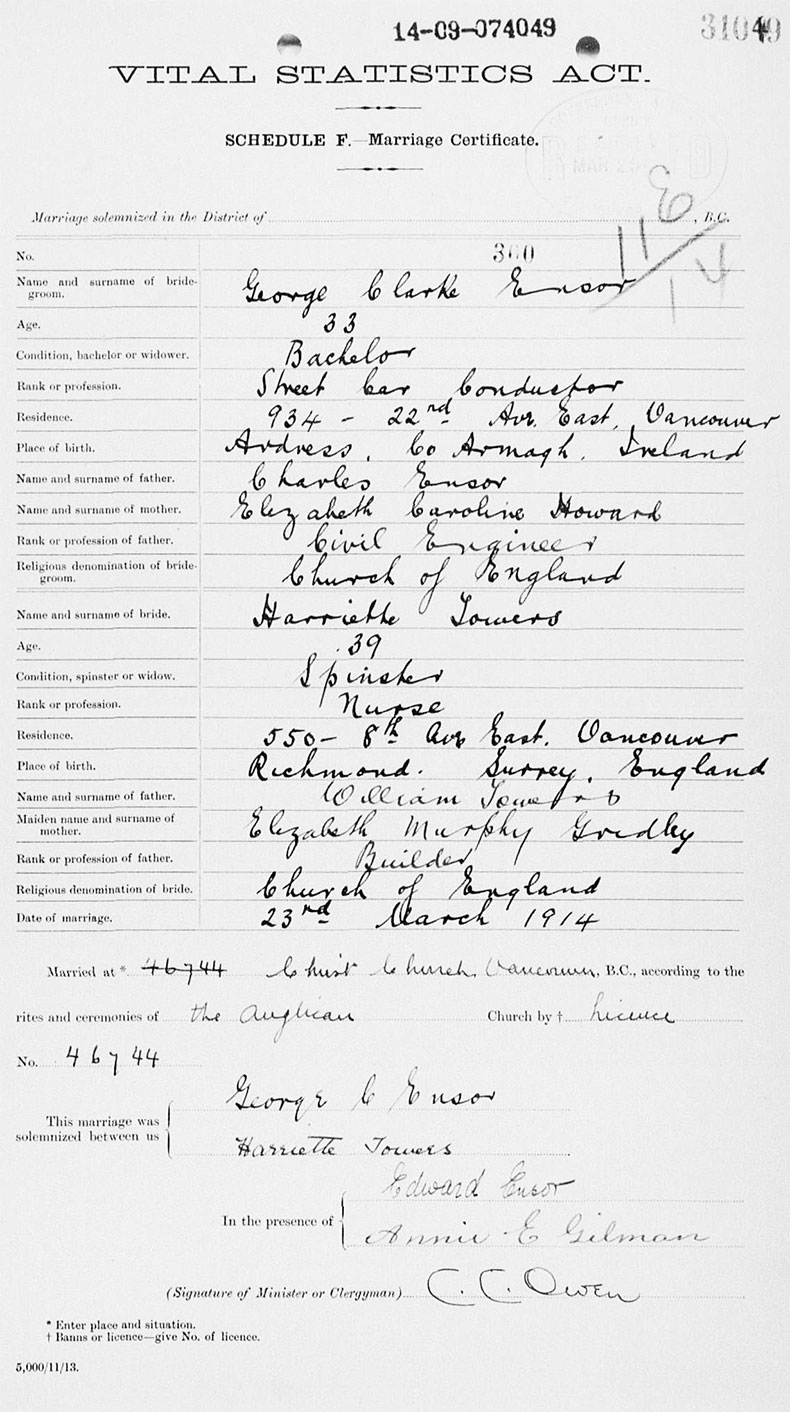 14-09-074049
31049
VITAL STATISTICS ACT.
SCHEDULE F.—Marriage Certificate.
MAR
Marriage solemnized in the District of , B.C.
116/14
No. 360
Name and surname of bridegroom. George Clarke Ensor
Age. 33
Condition, bachelor or widower. Bachelor
Rank or profession. Street Car Conductor
Residence. 934 - 22nd Ave. East, Vancouver
Place of birth. Ardress, Co Armagh, Ireland
Name and surname of father. Charles Ensor
Name and surname of mother. Elizabeth Caroline Howard
Rank or profession of father. Civil Engineer
Religious denomination of bridegroom. Church of England
Name and surname of bride. Harriette Towers
Age. 39
Condition, spinster or widow. Spinster
Rank or profession. Nurse
Residence. 550 - 8th Ave East, Vancouver
Place of birth. Richmond. Surrey, England
Name and surname of father. William Towers
Maiden name and surname of mother. Elizabeth Murphy Gridley
Rank or profession of father. Builder
Religious denomination of bride. Church of England
Date of marriage. 23rd March 1914
Married at * 46744 Christ Church, Vancouver, B.C., according to the
rites and ceremonies of the Anglican Church by † Licence
No. 46744
This marriage was solemnized between us
George C Ensor
Harriette Towers
In the presence of
Edward Ensor
Annie E Gilman
(Signature of Minister or Clergyman) C. C. Owen
* Enter place and situation.
† Banns or licence—give No. of licence.
5,000/11/13.